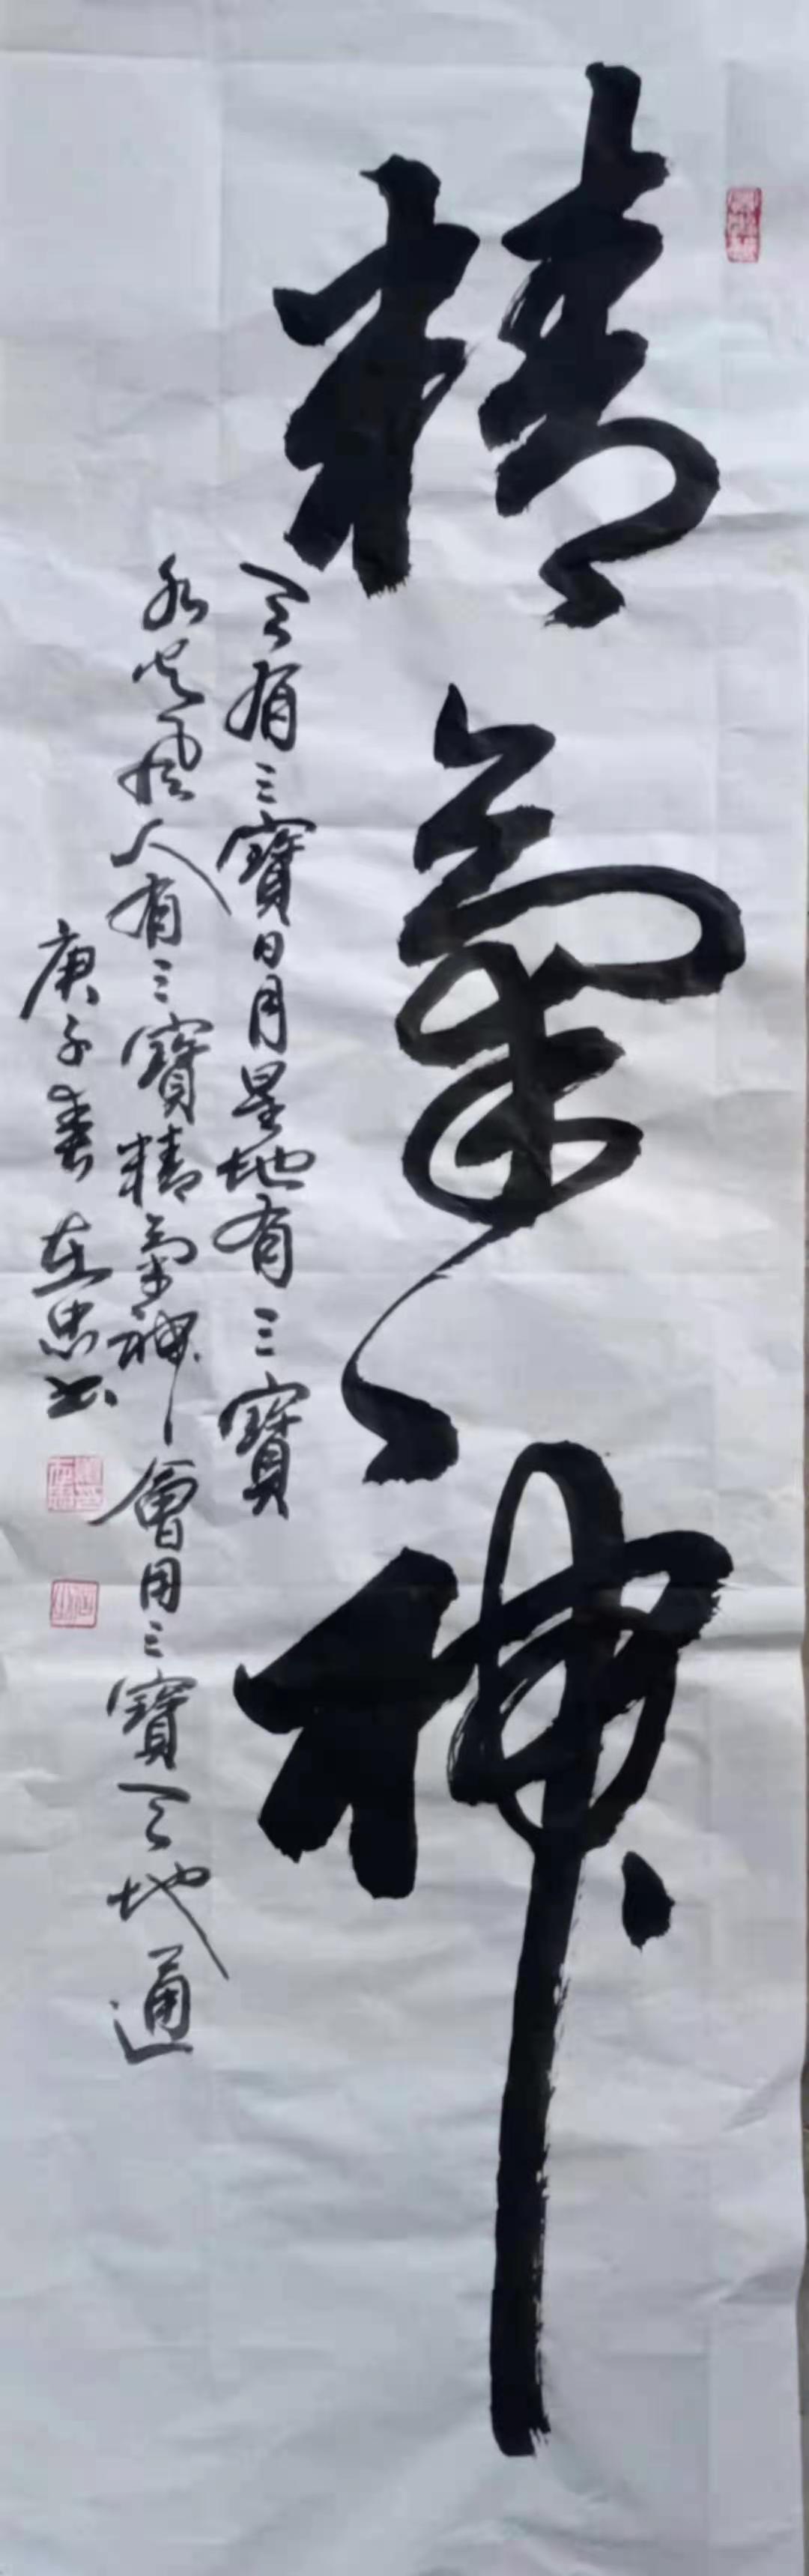 精氣神
天有三寶日月星地有三寶
水火風人有三寶精氣神會用三寶天地通
庚子春在忠书